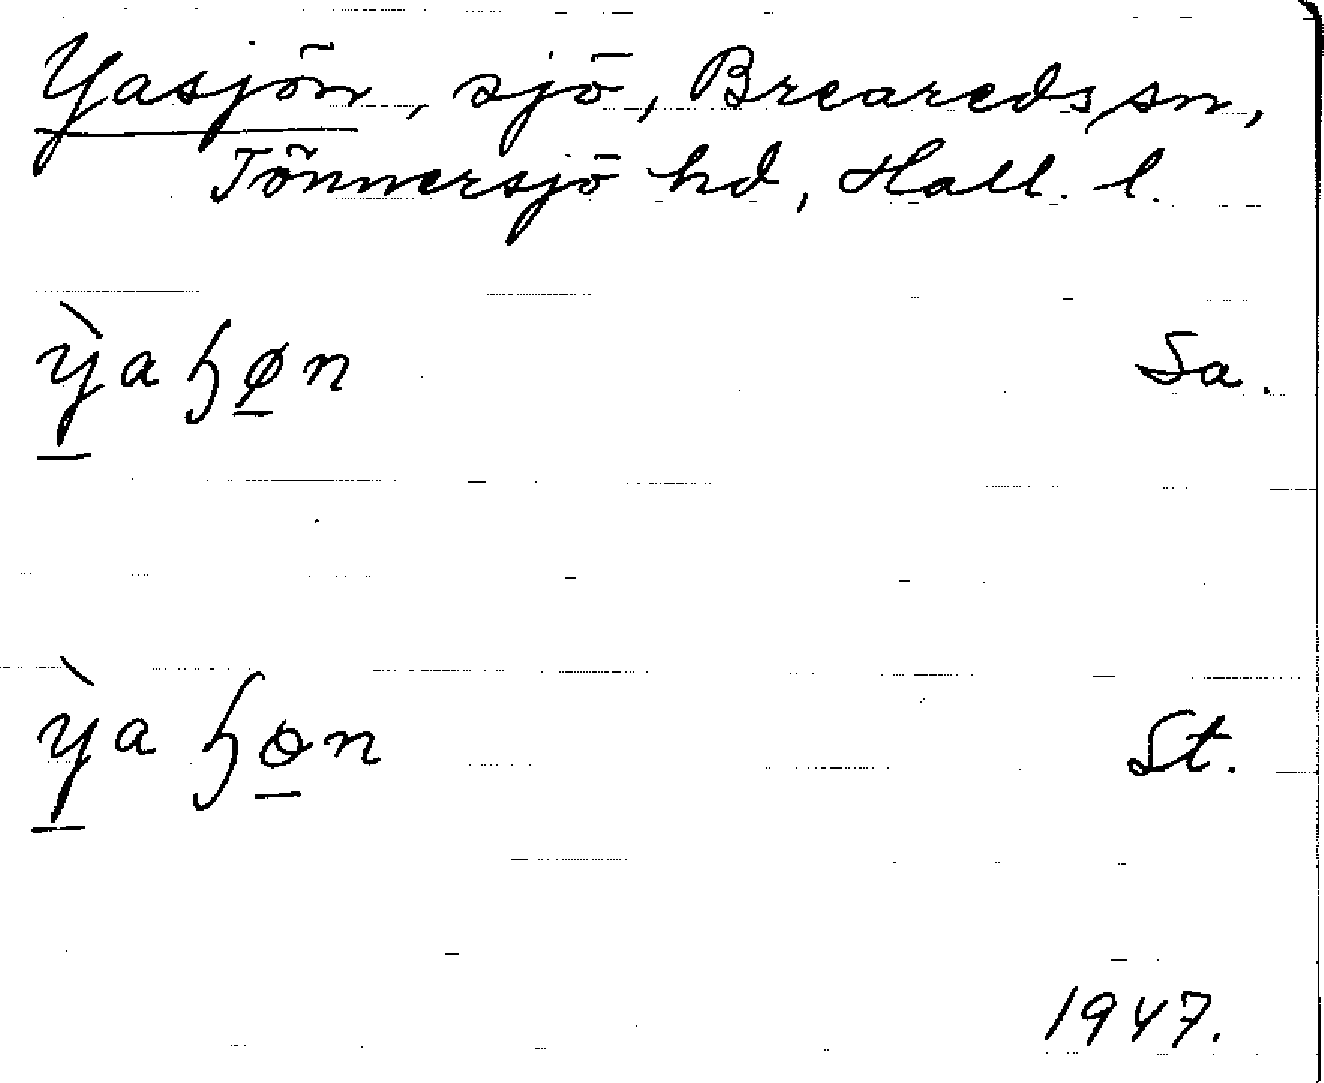 Yasjön, sjö, Breareds sn,
Tönnersjö hd, Hall. l.
ỳ̱a ɧø̱n Sa.
ỳ̱a ɧɵ̱n St.
1947.